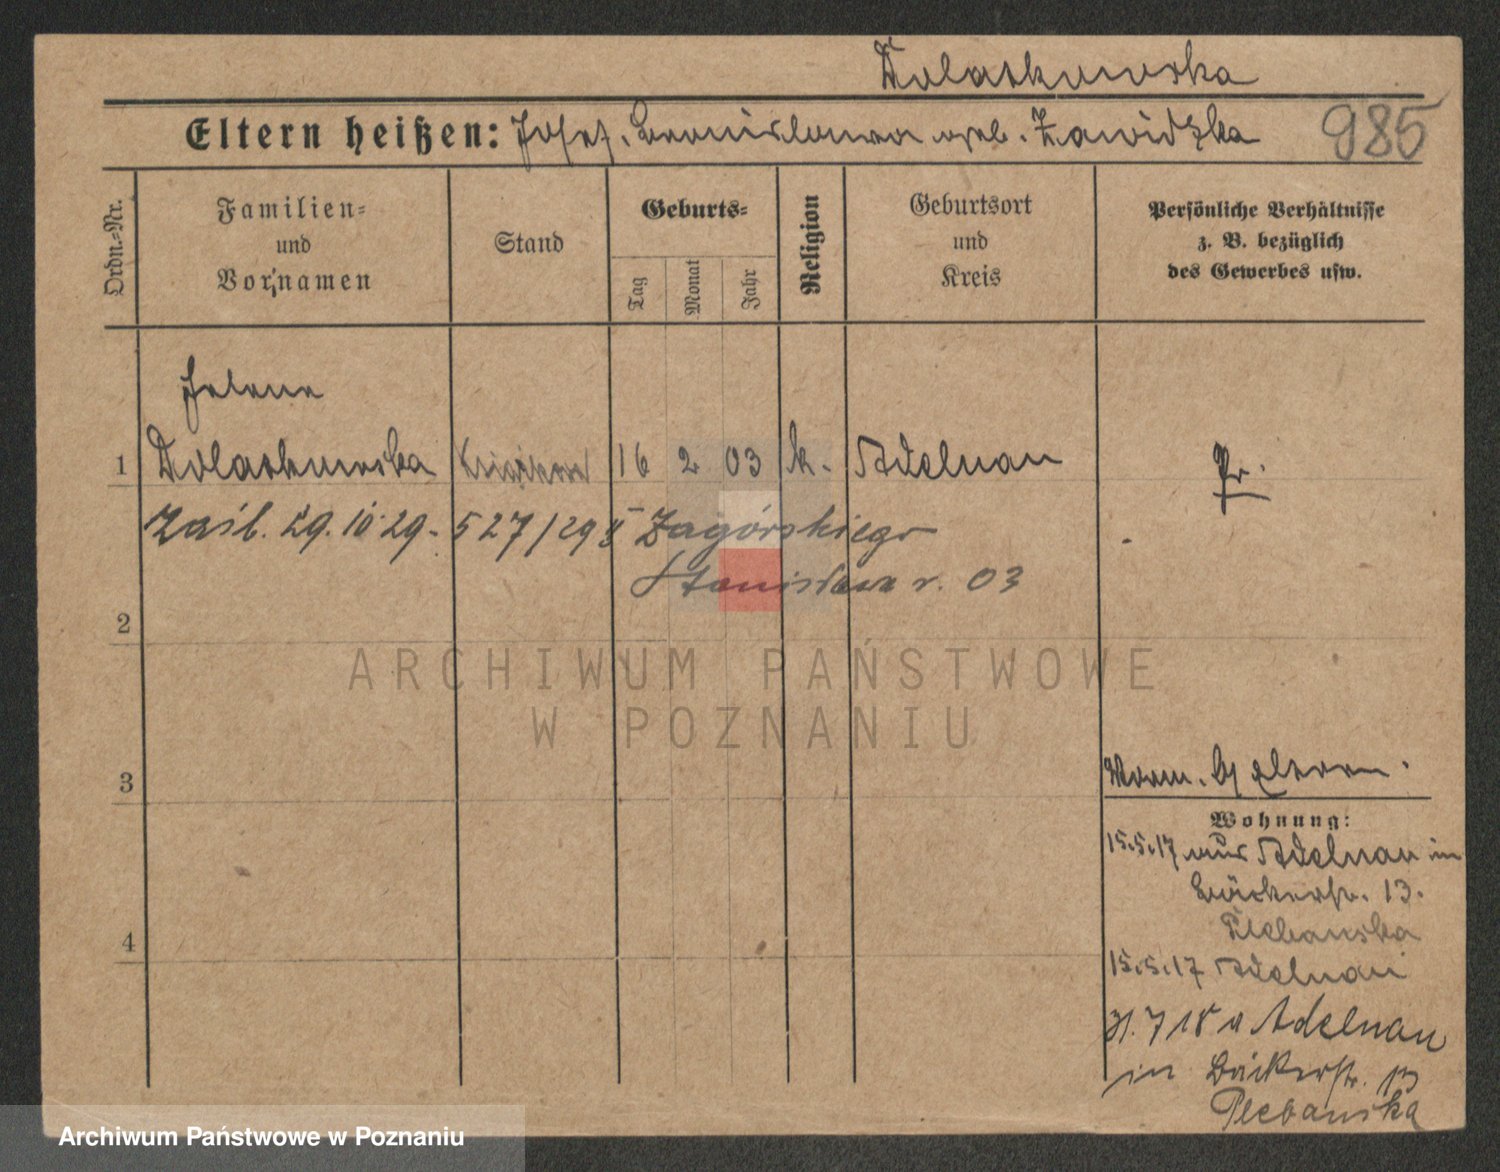 Dolatkowska
Eltern heißen: Josef, Bronislawa geb. Zawidzka 985
Ordn.-Nr.
Familien-
und
Vornamen
Stand
Geburts-
Tag
Monat
Jahr
Religion
Geburtsort
und
Kreis
Persönliche Verhältnisse
z. B. bezüglich
des Gewerbes usw.
Helene
1 Dolatkowska 16 2 03 k. Adelnau Pr.
Zaśl. 29.10.29. 527/29 Zagórskiego
Stanisława r. 03
2
ARCHIWUM PAŃSTWOWE
W POZNANIU
3
Eltern.
Wohnung:
15.5.17 aus Adelnau in
Bäckerstr. 13.
Plebanska
4
15.5.17 Adelnau
31.7 18 a Adelnau
in Bäckerstr. 13
Plebanska
Archiwum Państwowe w Poznaniu